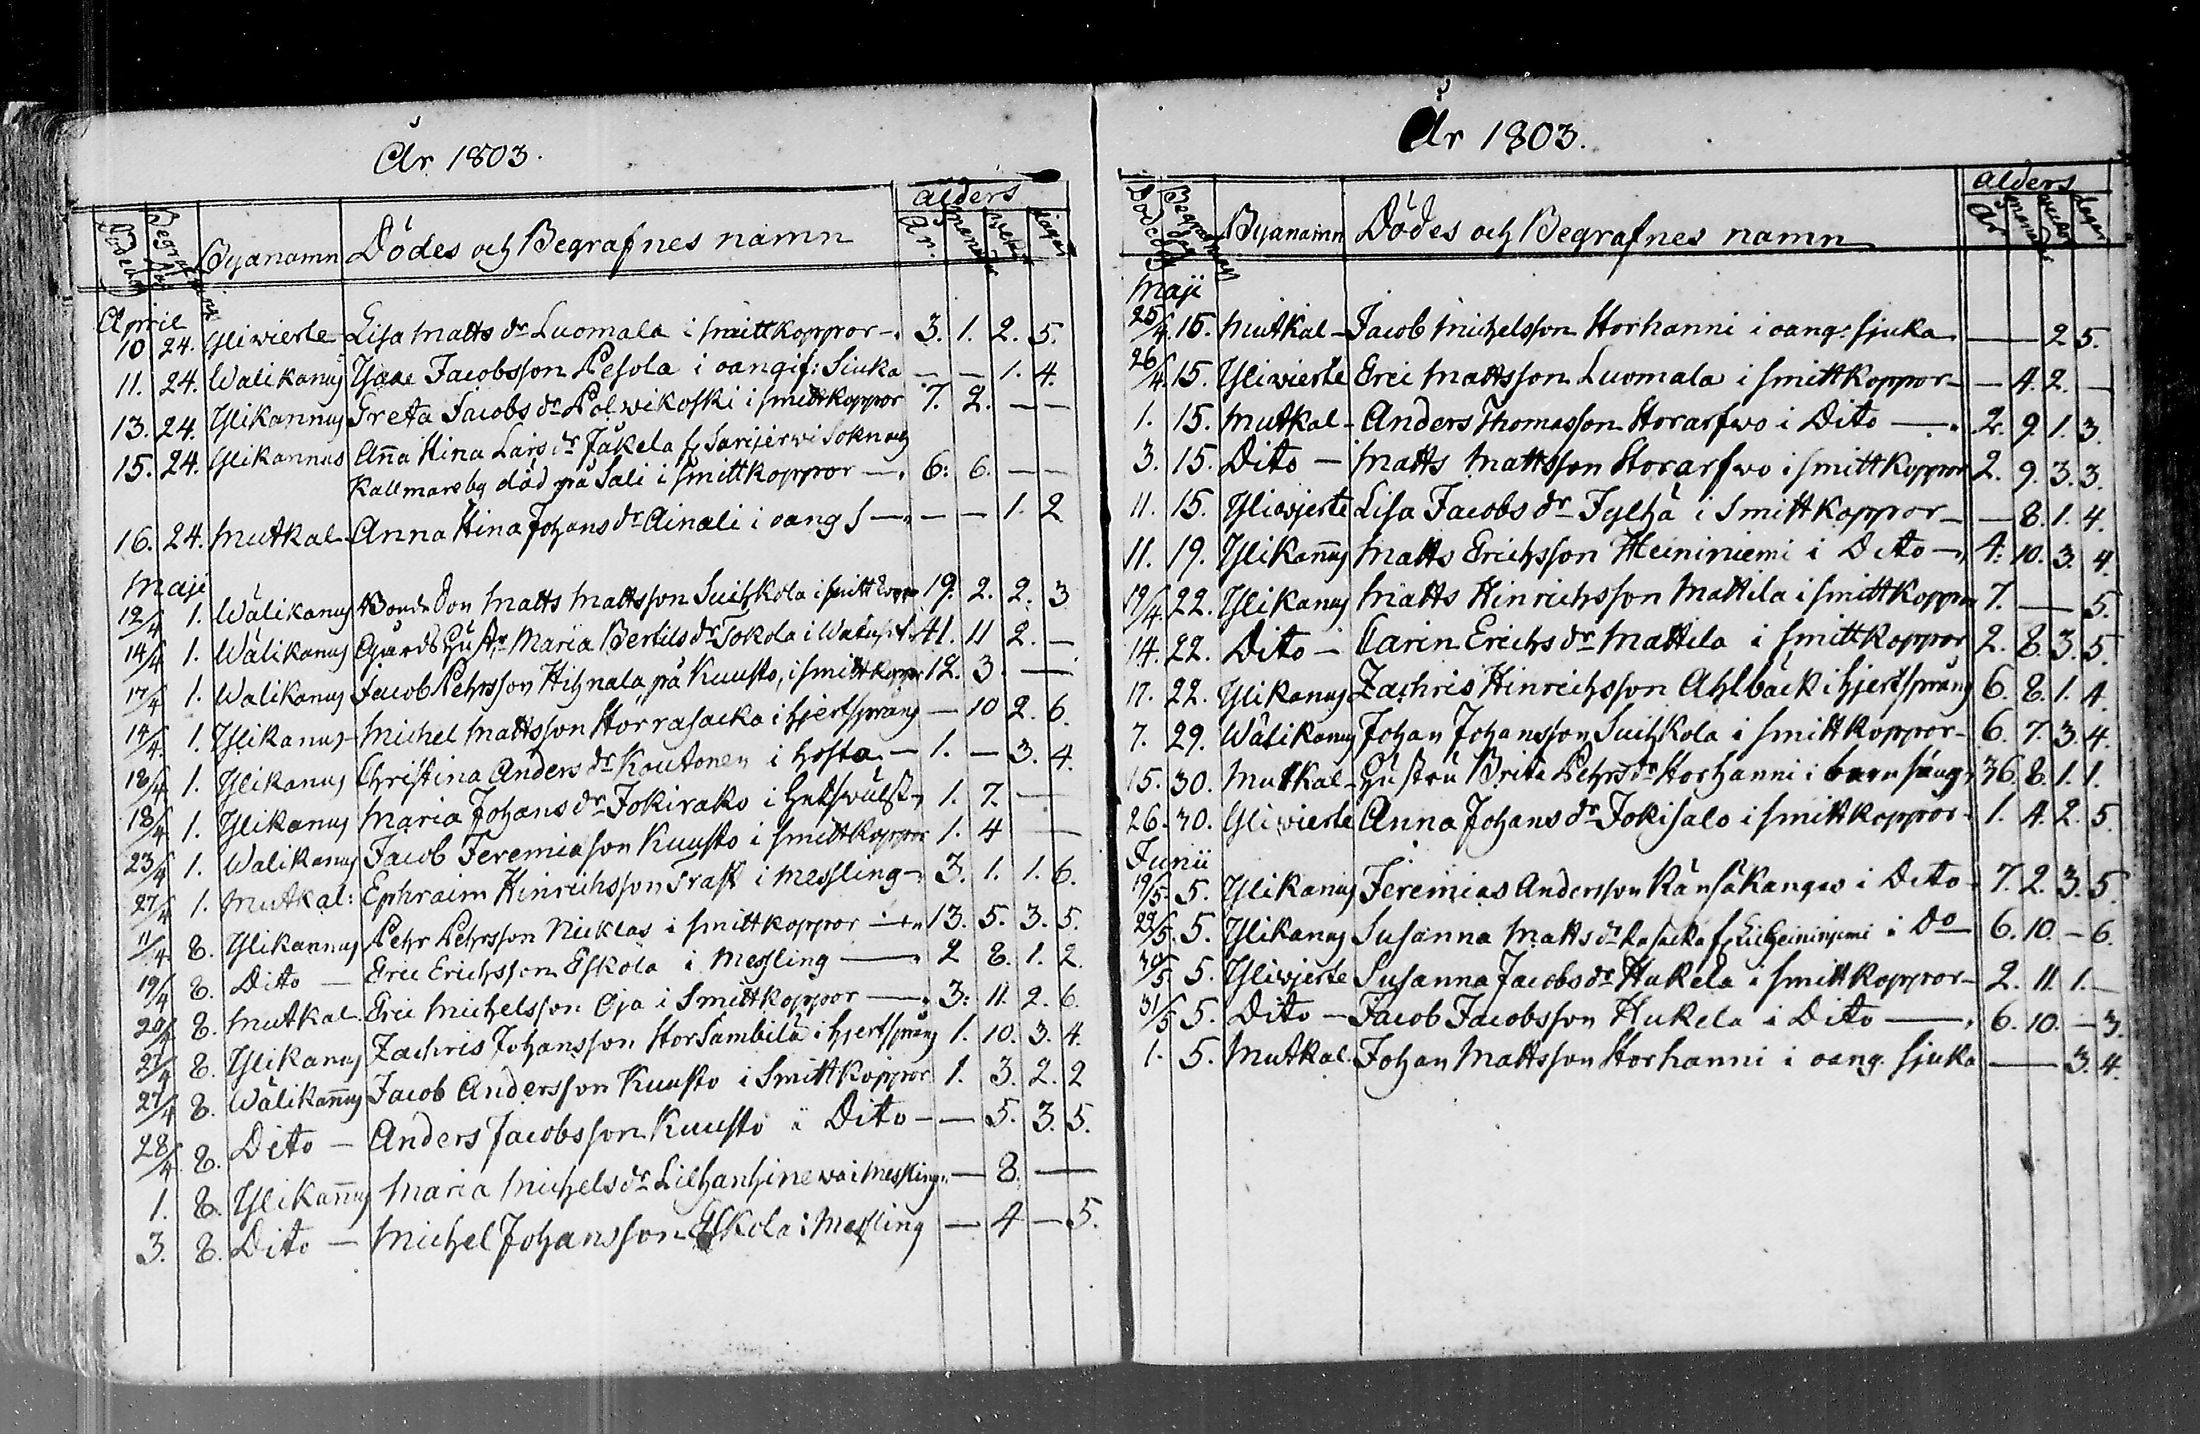 År 1803.
Dödedag Begrafnings dag Byanamn Dödes och Begrafnes namn ålders År. månader Vekor dagar
April
10 24. Yliwierte Lisa Matts dr Luomala i smittkoppor 3. 1. 2. 5.
11. 24. Walikanus Isaac Jacobsson Pesola i oangif: Siuka — — 1. 4.
13. 24. Ylikannus Greta Jacobs dr Polwikoski i smittkoppor 7. 2. — —
15. 24. Ylikannus Anna Stina Lars dr Jäkela f Sarijerwi Sokn och
Kallmare by död på Sali i smittkoppor — 6: 6. — —
16. 24. Mutkal Anna Stina Johans dr Ainali i oang S — — — 1. 2
Maji
12/4 1. Wälikanus Bonde Son Matts Mattsson Suihkola i smittkoppor 19. 2. 2. 3
14/4 1. Wälikanus Gjärds Hustr Maria Bertils dr Tokola i 41. 11 2. —
17/4 1. Walikanus Jacob Pehrsson Hihnala på Kuusto, i smittkoppor 12. 3. —
14/4. 1. Ylikanus Michel Mattsson Storrasacka i hjertsprång — 10 2. 6.
18/4 1. Ylikanus Christina Anders dr Koutonen i hosta — 1. — 3. 4.
18/4 1. Ylikanus Maria Johans dr Jokirako i halswulst 1. 7. —
23/4 1. Walikanus Jacob Jeremiason Kuusto i smittkoppor 1. 4 —
27/4 1. Mutkal: Ephraim Hinrichsson Trast i Messling 3. 1. 1. 6.
11/4 8. Ylikannus Pehr Pehrsson Nicklas i smittkoppor 13. 5. 3. 5.
19/4 8. Dito — Eric Erichsson Eskola i Messling — 2 8. 1. 2.
20/4 8. Mutkal Eric Michelsson Oja i Smittkoppor — 3: 11. 2. 6.
27/4 8. Ylikanus Zachris Johansson Storsambila i hjertsprång 1. 10. 3. 4.
27/4 8. Wälikannus Jacob Andersson Kuusto i Smittkoppor 1. 3. 2. 2
28/4 8. Dito — Anders Jacobsson Kuusto i Dito — — 5. 3. 5.
1. 8. Ylikannus Maria Michels dr Lilhanhinewa i Messling — 8. —
3. 8. Dito — Michel Johansson Eskola i Messling — 4 — 5.
År 1803.
Dödedag Begrafnings dag Byanamn Dödes och Begrafnes namn ålders År månader weckor dagar
Maji
25/4. 15. Mutkal — Jacob Michelsson Storhanni i oang. sjuka — 2 5.
26/4 15. Yliwierte Eric Mattsson Luomala i smittkoppor — 4. 2. —
1. 15. Mutkal — Anders Thomasson Storarfwo i Dito — 2. 9. 1. 3.
3. 15. Dito — Matts Mattsson Storarfwo i smittkoppor 2. 9. 3. 3.
11. 15. Yliwjerte Lisa Jacobs dr Jylhä i Smittkoppor — — 8. 1. 4.
11. 19. Ylikannus Matts Erichsson Heininiemi i Dito — 4. 10. 3. 4.
19/4 22. Ylikanus Matts Hinrichsson Mattila i smittkoppor 7. — 5.
14. 22. Dito — Carin Erichs dr Mattila i smittkoppor 2. 8. 3. 5.
17. 22. Ylikanus Zachris Hinrichsson Ahlbäck i hjertsprång 6. 8. 1. 4.
7. 29. Wälikanus Johan Johansson Suihkola i smittkoppor — 6. 7. 3. 4.
15. 30. Mutkal — Hustru Brita Pehrs dr Storhanni i barnsäng 36. 8. 1. 1.
26. 30. Yliwierte Anna Johans dr Jokisalo i smittkoppor 1. 4. 2. 5.
Junii
19/5. 5. Ylikanus Jeremias Andersson Känsäkangas i Dito 7. 2. 3. 5.
29/5 5. Ylikanus Susanna Matts dr Rasacka f Lilheininiemi i Do 6. 10. — 6.
30/5 5. Yliwjerte Susanna Jacobs dr Hukela i smittkoppor — 2. 11. 1. —
31/5 5. Dito — Jacob Jacobsson Hukela i Dito — 6. 10. — 3.
1. 5. Mutkal Johan Mattsson Storhanni i oang. sjuka — 3. 4.